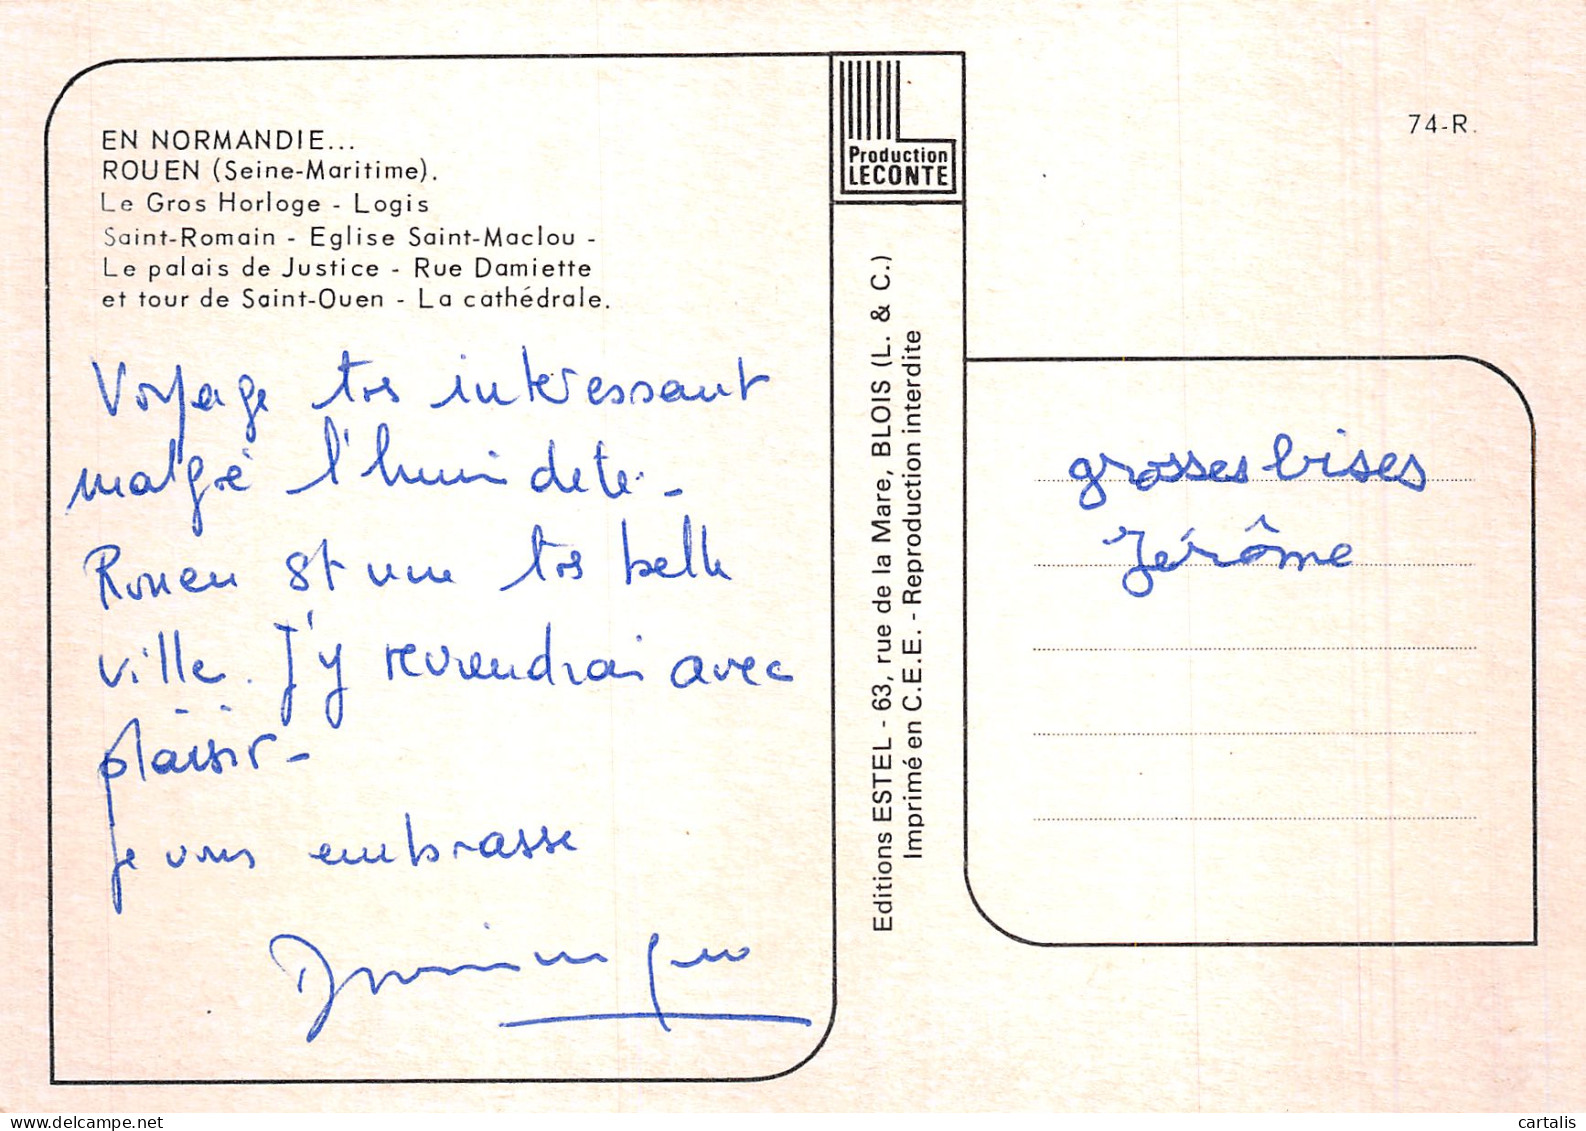 EN NORMANDIE...
ROUEN (Seine-Maritime).
Le Gros Horloge - Logis
Saint-Romain - Eglise Saint-Maclou -
Le palais de Justice - Rue Damiette
et tour de Saint-Ouen - La cathédrale.
Voyage très intéressant
malgré l'humidete -
Rouen est une très belle
ville. J'y reviendrai avec
plaisir -
je vous embrasse
Dominique
Production
LECONTE
Editions ESTEL - 63, rue de la Mare, BLOIS (L. & C.)
Imprimé en C.E.E. - Reproduction interdite
74-R.
grosses bises
Jérôme
cartalis